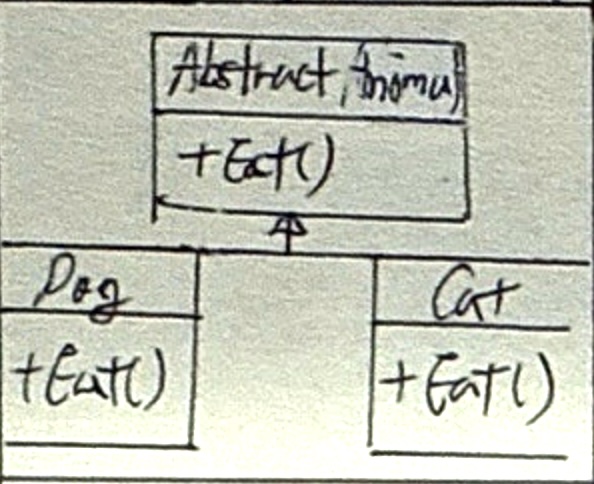 Abstract Animal
+Eat()
Dog
Cat
+Eat()
+Eat()